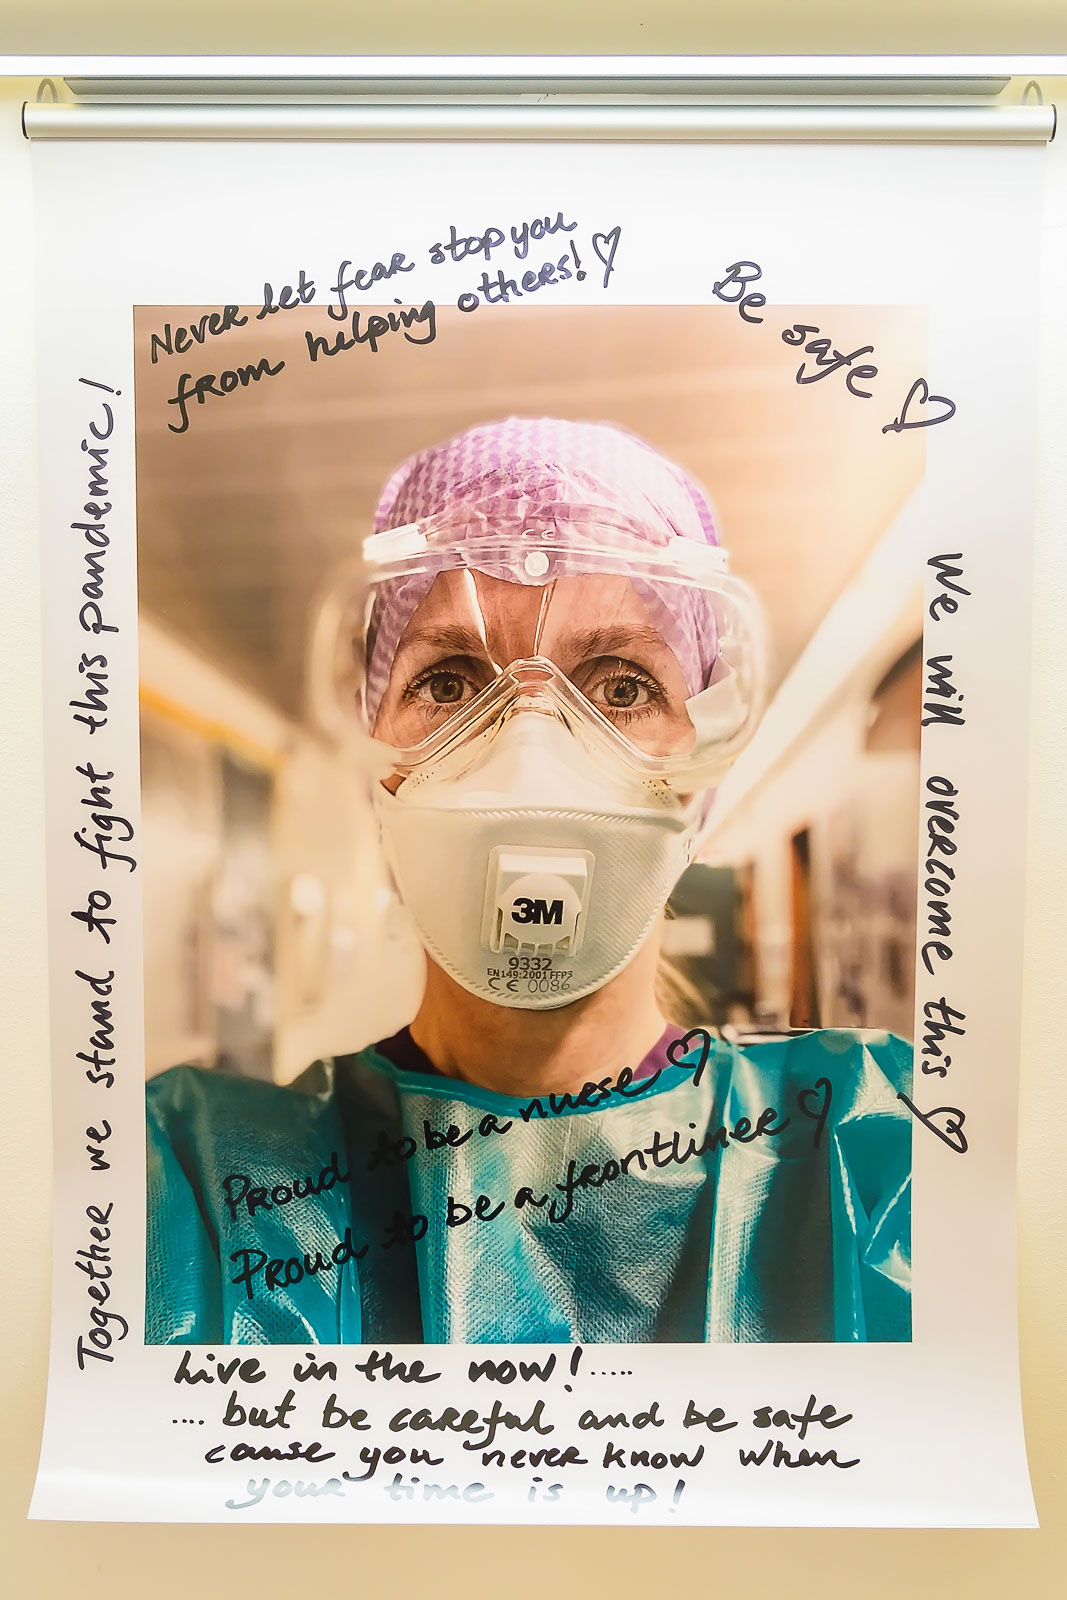 Never let fear stop you
from helping others!♡
Be safe ♡
Together we stand to fight this pandemic!
We will overcome this ♡
3M
9332
EN149:2001 FFP3
CE 0086
Proud to be a nurse ♡
Proud to be a frontliner ♡
Live in the now!.....
.... but be careful and be safe
cause you never know when
your time is up!